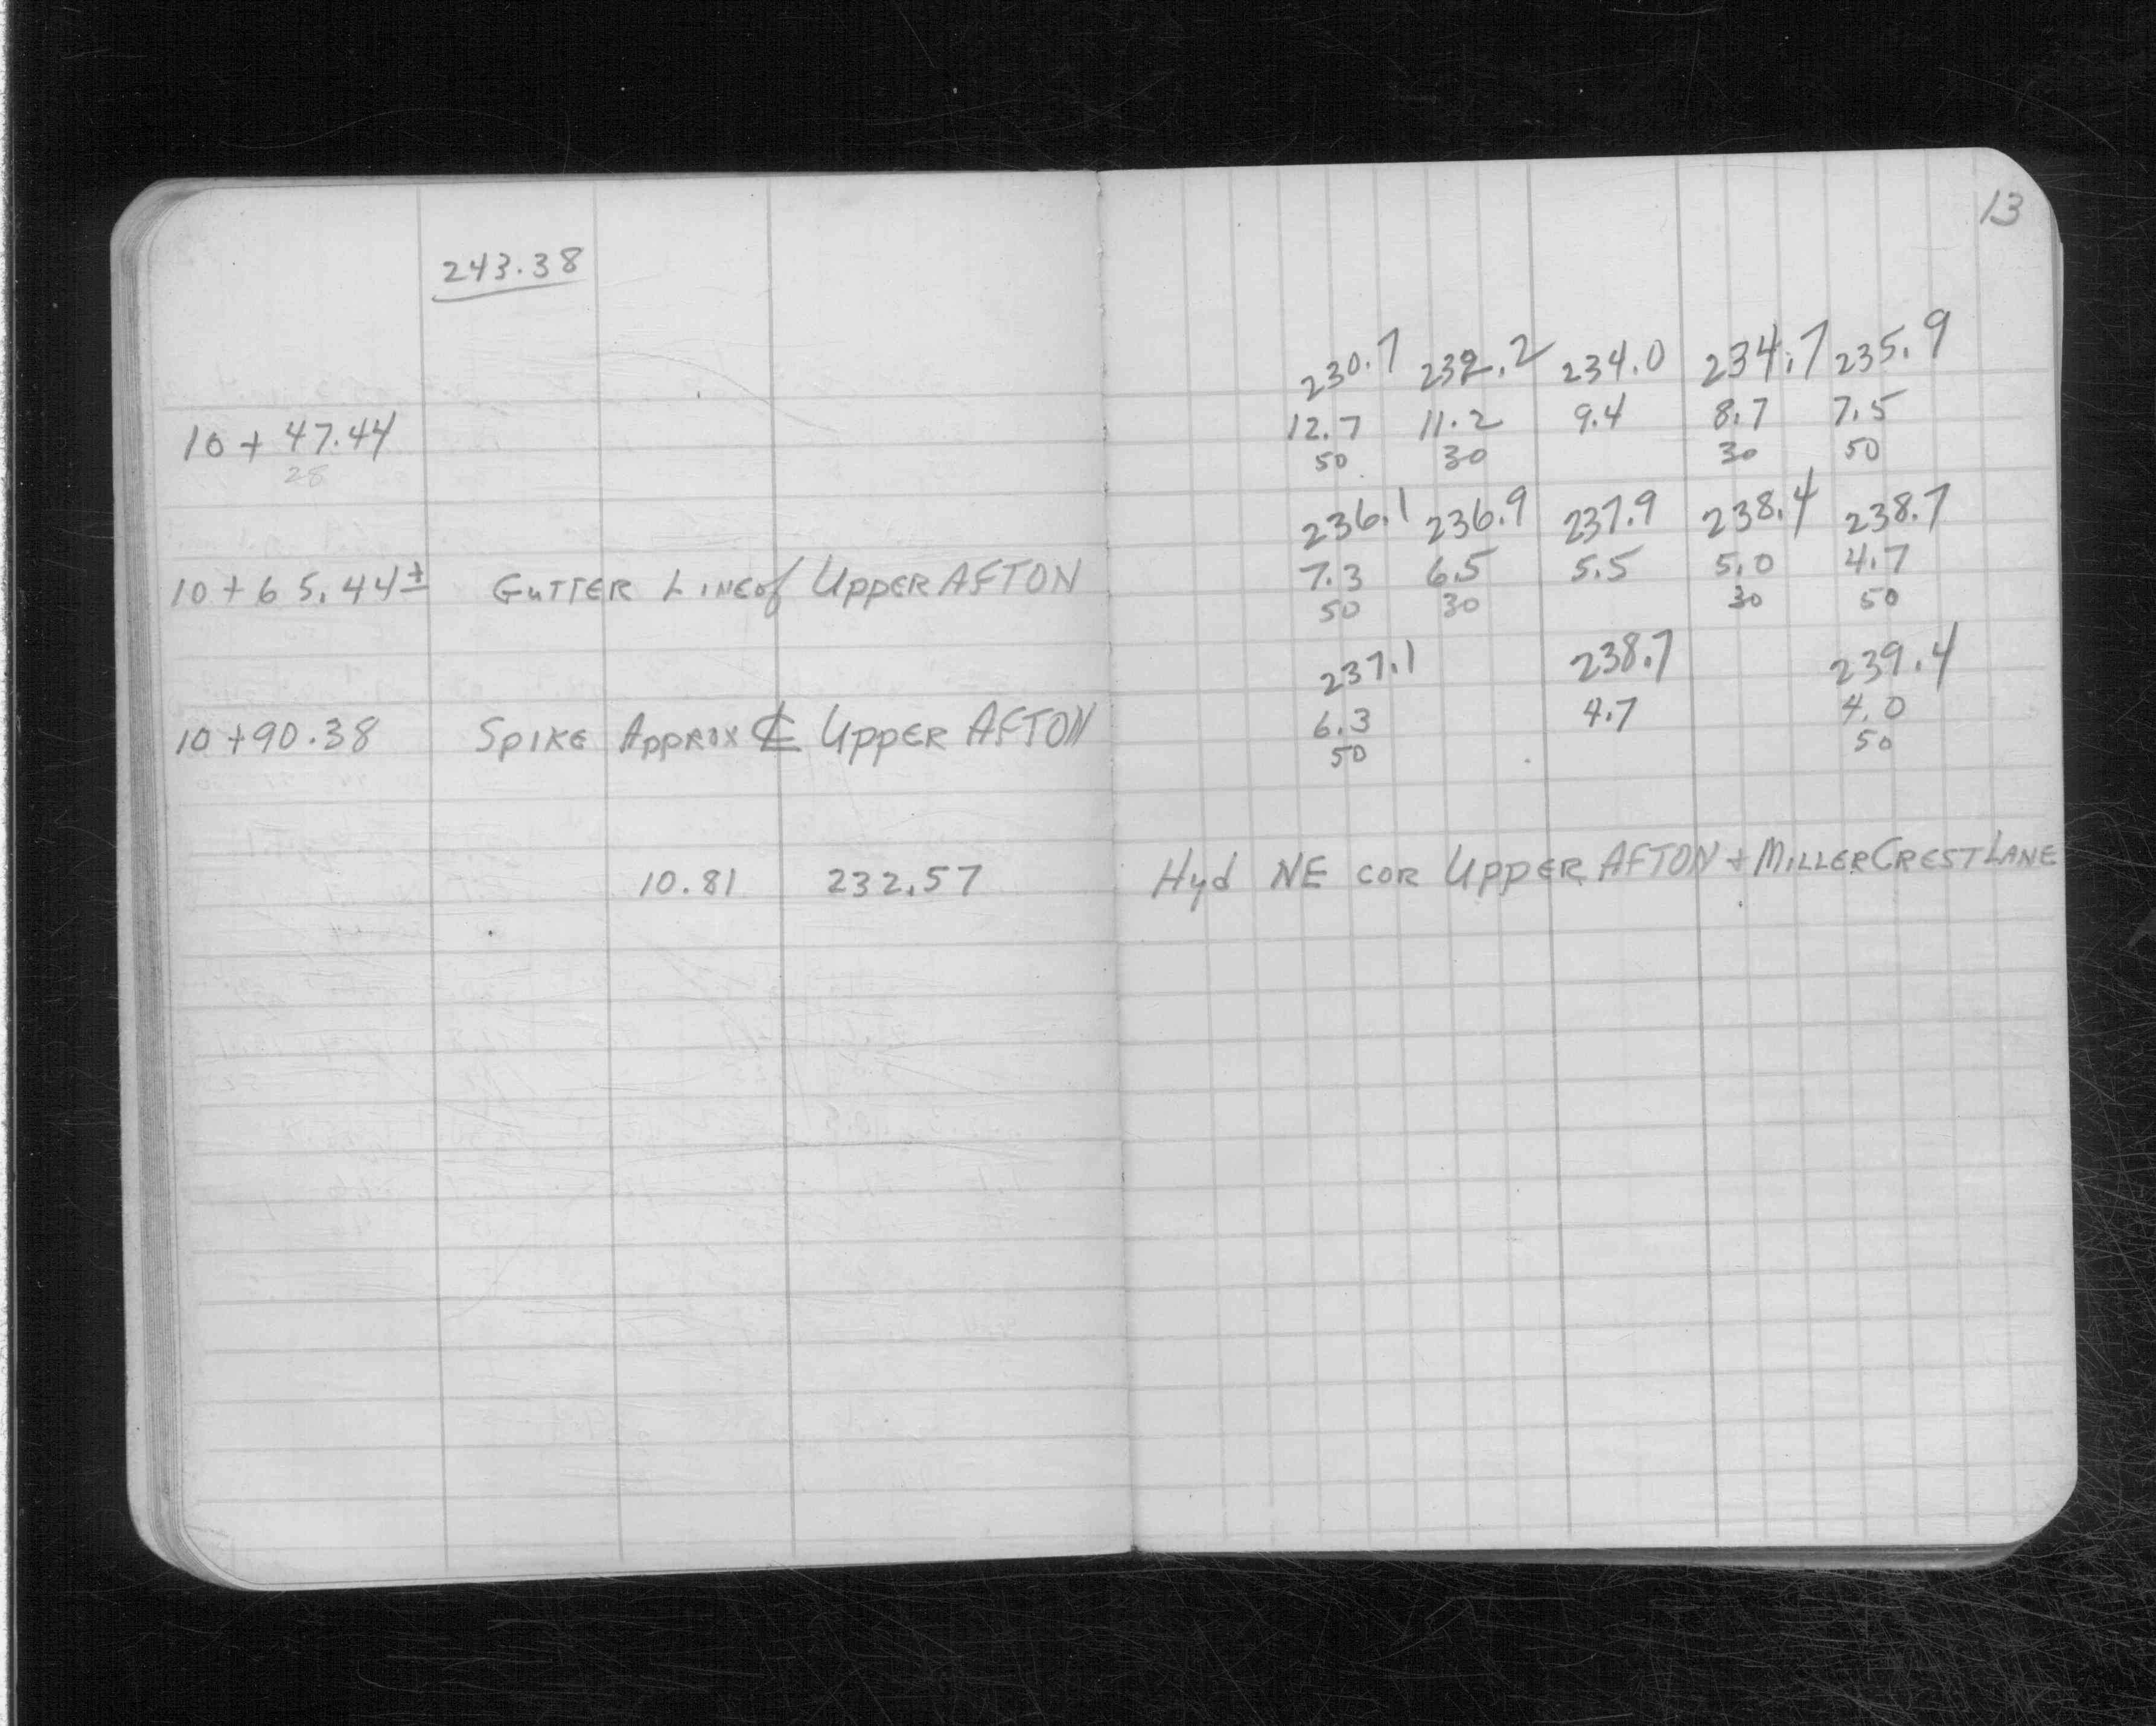 13
243.38
230.7 232.2 234.0 234.7 235.9
10 + 47.44 12.7 11.2 9.4 8.7 7.5
28 50 30 30 50
236.1 236.9 237.9 238.4 238.7
10 + 65.44± GUTTER LINE of UPPER AFTON 7.3 6.5 5.5 5.0 4.7
50 30 30 50
237.1 238.7 239.4
10 + 90.38 SPIKE APPROX ℄ UPPER AFTON 6.3 4.7 4.0
50 50
10.81 232.57 Hyd NE COR UPPER AFTON + MILLER CREST LANE